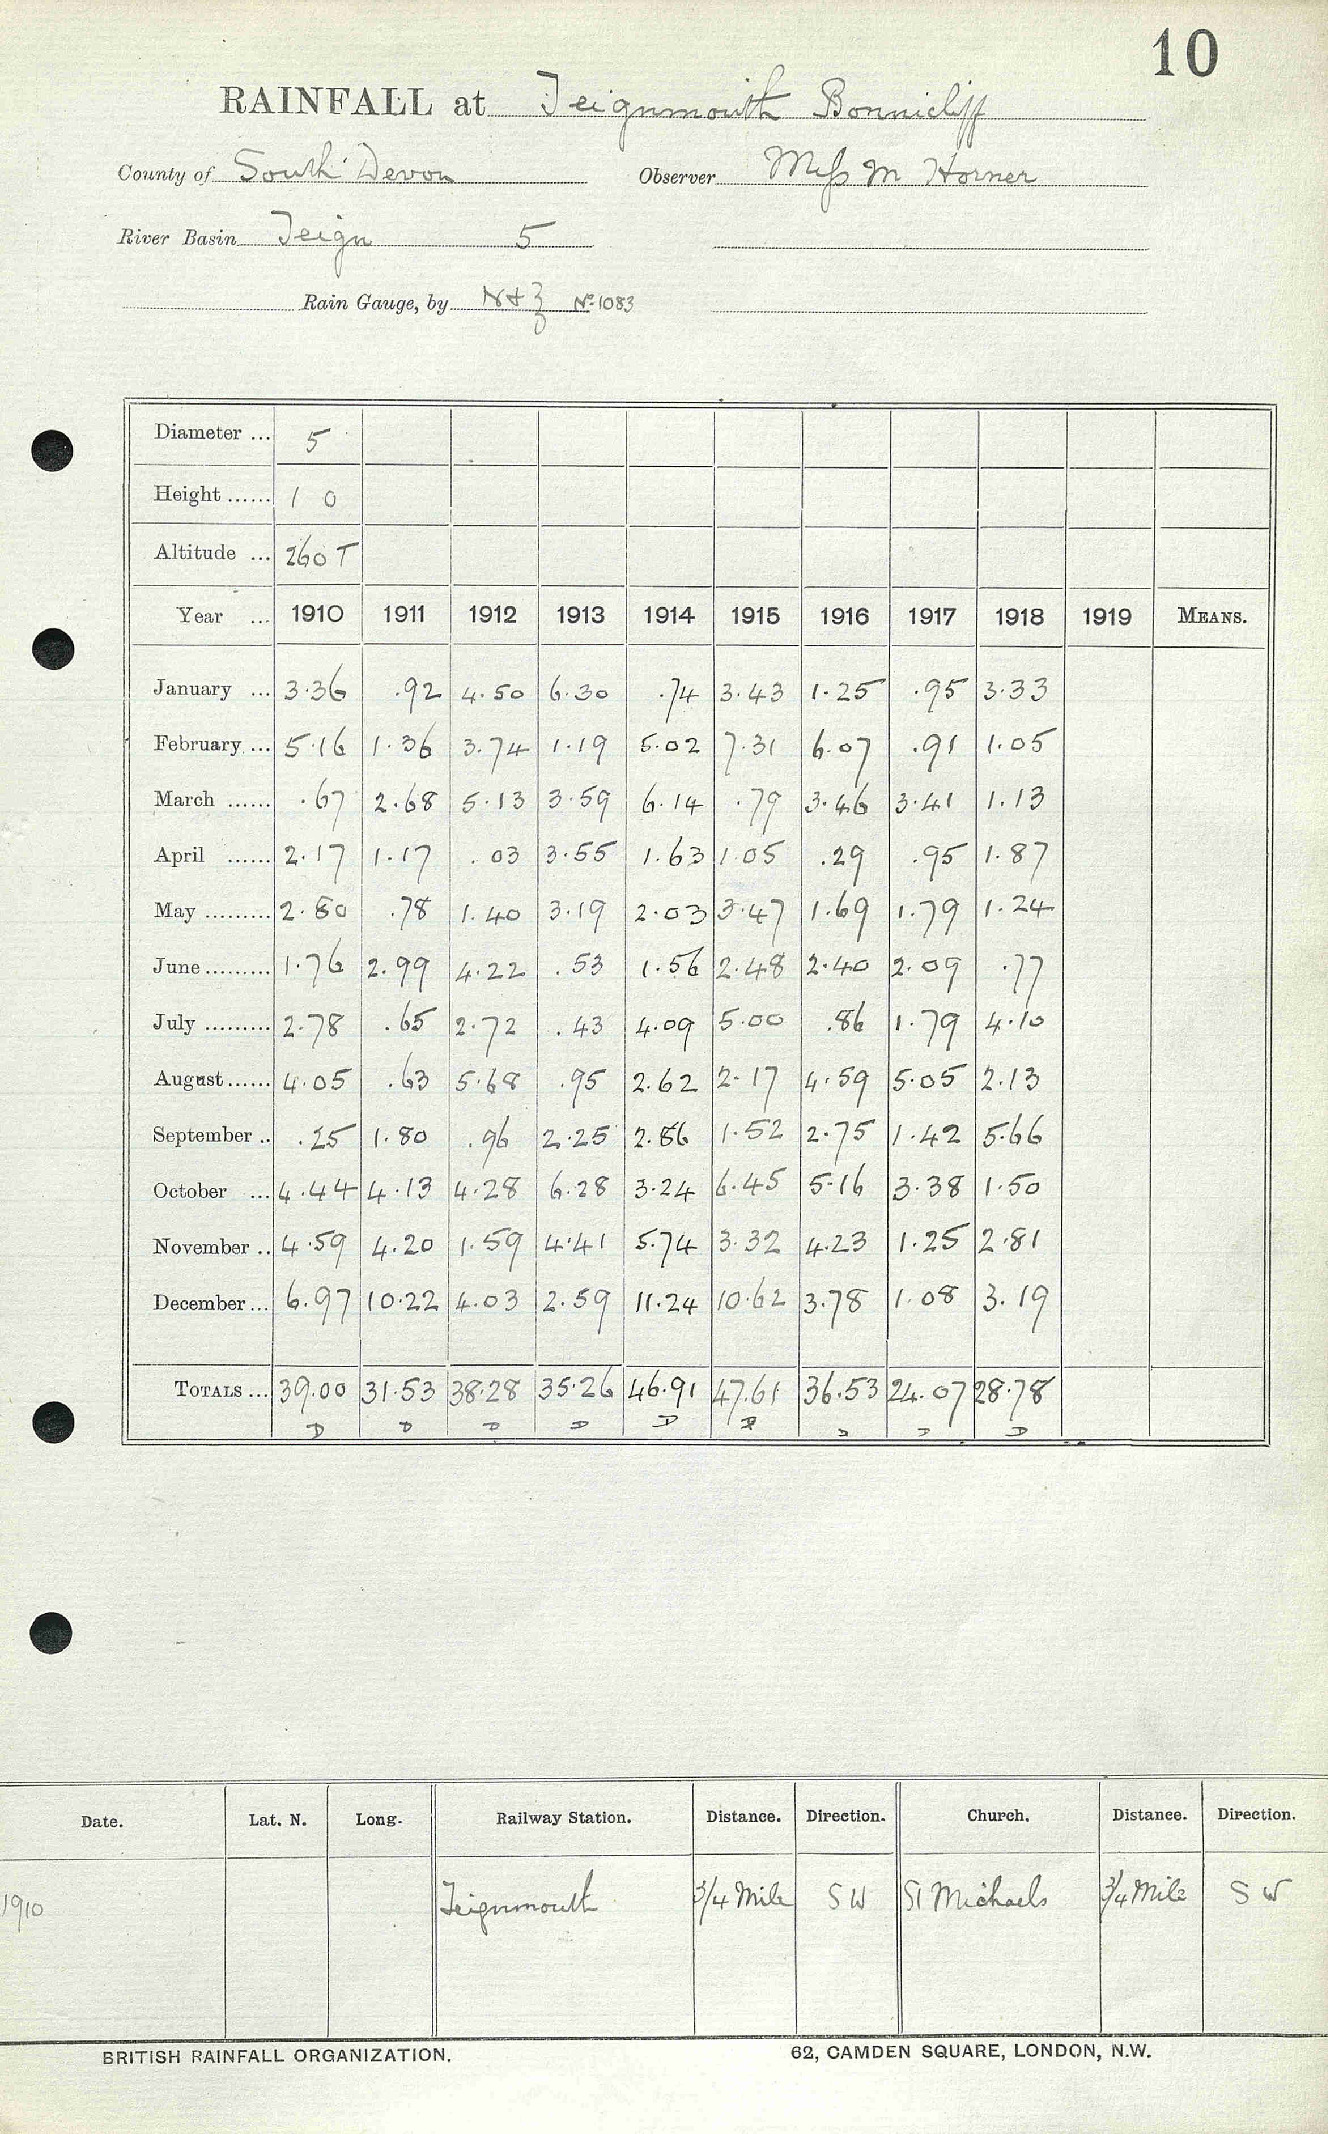 10
RAINFALL at Teignmouth Bonnicliff
County of South Devon Observer Miss M Horner
River Basin Teign 5
Rain Gauge, by N & Z No 1083
Diameter ... 5
Height ...... 1 0
Altitude ... 260 T
Year ... 1910 1911 1912 1913 1914 1915 1916 1917 1918 1919 MEANS.
January ... 3.36 .92 4.50 6.30 .74 3.43 1.25 .95 3.33
February ... 5.16 1.36 3.74 1.19 5.02 7.31 6.07 .91 1.05
March ...... .67 2.68 5.13 3.59 6.14 .79 3.46 3.41 1.13
April ...... 2.17 1.17 .03 3.55 1.63 1.05 .29 .95 1.87
May ......... 2.80 .78 1.40 3.19 2.03 3.47 1.69 1.79 1.24
June ......... 1.76 2.99 4.22 .53 1.56 2.48 2.40 2.09 .77
July ......... 2.78 .65 2.72 .43 4.09 5.00 .86 1.79 4.10
August ...... 4.05 .63 5.68 .95 2.62 2.17 4.59 5.05 2.13
September .. .25 1.80 .96 2.25 2.86 1.52 2.75 1.42 5.66
October ... 4.44 4.13 4.28 6.28 3.24 6.45 5.16 3.38 1.50
November .. 4.59 4.20 1.59 4.41 5.74 3.32 4.23 1.25 2.81
December ... 6.97 10.22 4.03 2.59 11.24 10.62 3.78 1.08 3.19
TOTALS ... 39.00 31.53 38.28 35.26 46.91 47.61 36.53 24.07 28.78
D D D D D D D D D
Date. Lat. N. Long. Railway Station. Distance. Direction. Church. Distance. Direction.
1910 Teignmouth 3/4 Mile S W St Michaels 3/4 Mile S W
BRITISH RAINFALL ORGANIZATION. 62, CAMDEN SQUARE, LONDON, N.W.